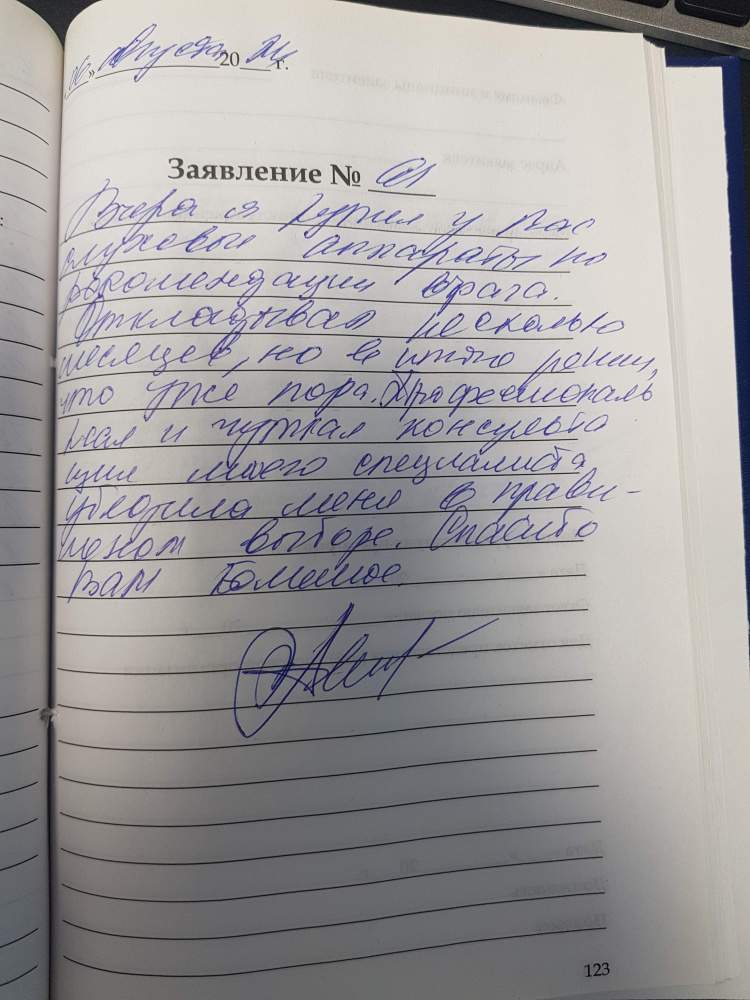 06 » Августа 20 24 г.
Заявление № 61
Вчера я купил у вас
слуховые аппараты по
рекомендации врача.
Откладывал несколько
месяцев, но в итоге решил,
что уже пора. Профессиональ
ная и чуткая консульта
ция моего специалиста
убедила меня в прави-
льном выборе. Спасибо
Вам большое.
123